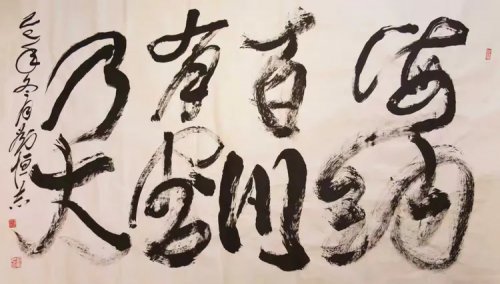 海纳
百川
有容
乃大
年冬月